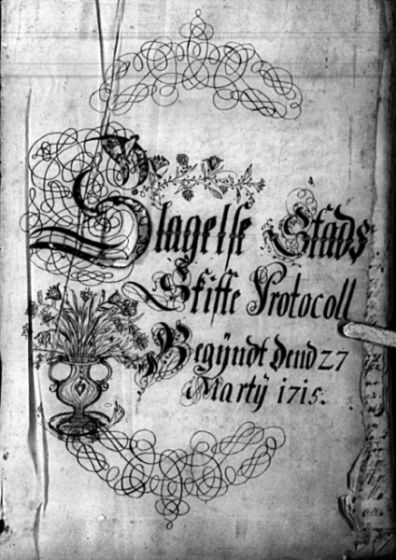 Slagelse Stads
Skifte Protocoll
Begÿndt Dend 27
Martÿ 1715.